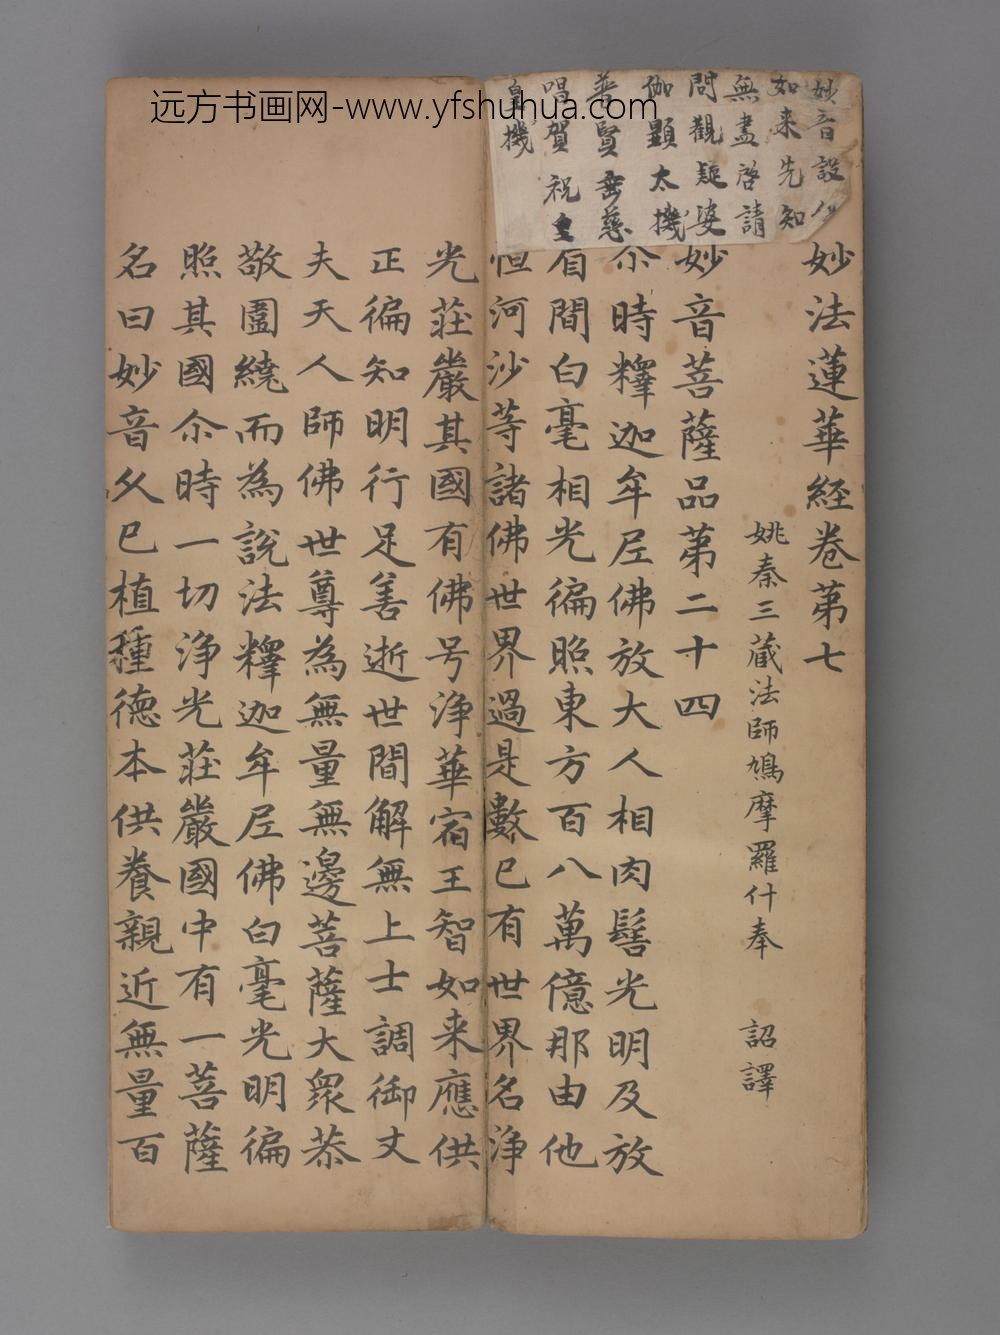 远方书画网-www.yfshuhua.com
妙音設
如来先知
無盡啓請
問觀疑婆
伽顯太機
普賢垂慈
唱賀祝皇
皇機
妙法蓮華經卷第七
姚秦三藏法師鳩摩羅什奉 詔譯
妙音菩薩品第二十四
尒時釋迦牟尼佛放大人相肉髻光明及放
眉間白毫相光徧照東方百八萬億那由他
恒河沙等諸佛世界過是數已有世界名淨
光莊嚴其國有佛号淨華宿王智如来應供
正徧知明行足善逝世間解無上士調御丈
夫天人師佛世尊為無量無邊菩薩大衆恭
敬圍繞而為說法釋迦牟尼佛白毫光明徧
照其國尒時一切淨光莊嚴國中有一菩薩
名曰妙音久已植種德本供養親近無量百